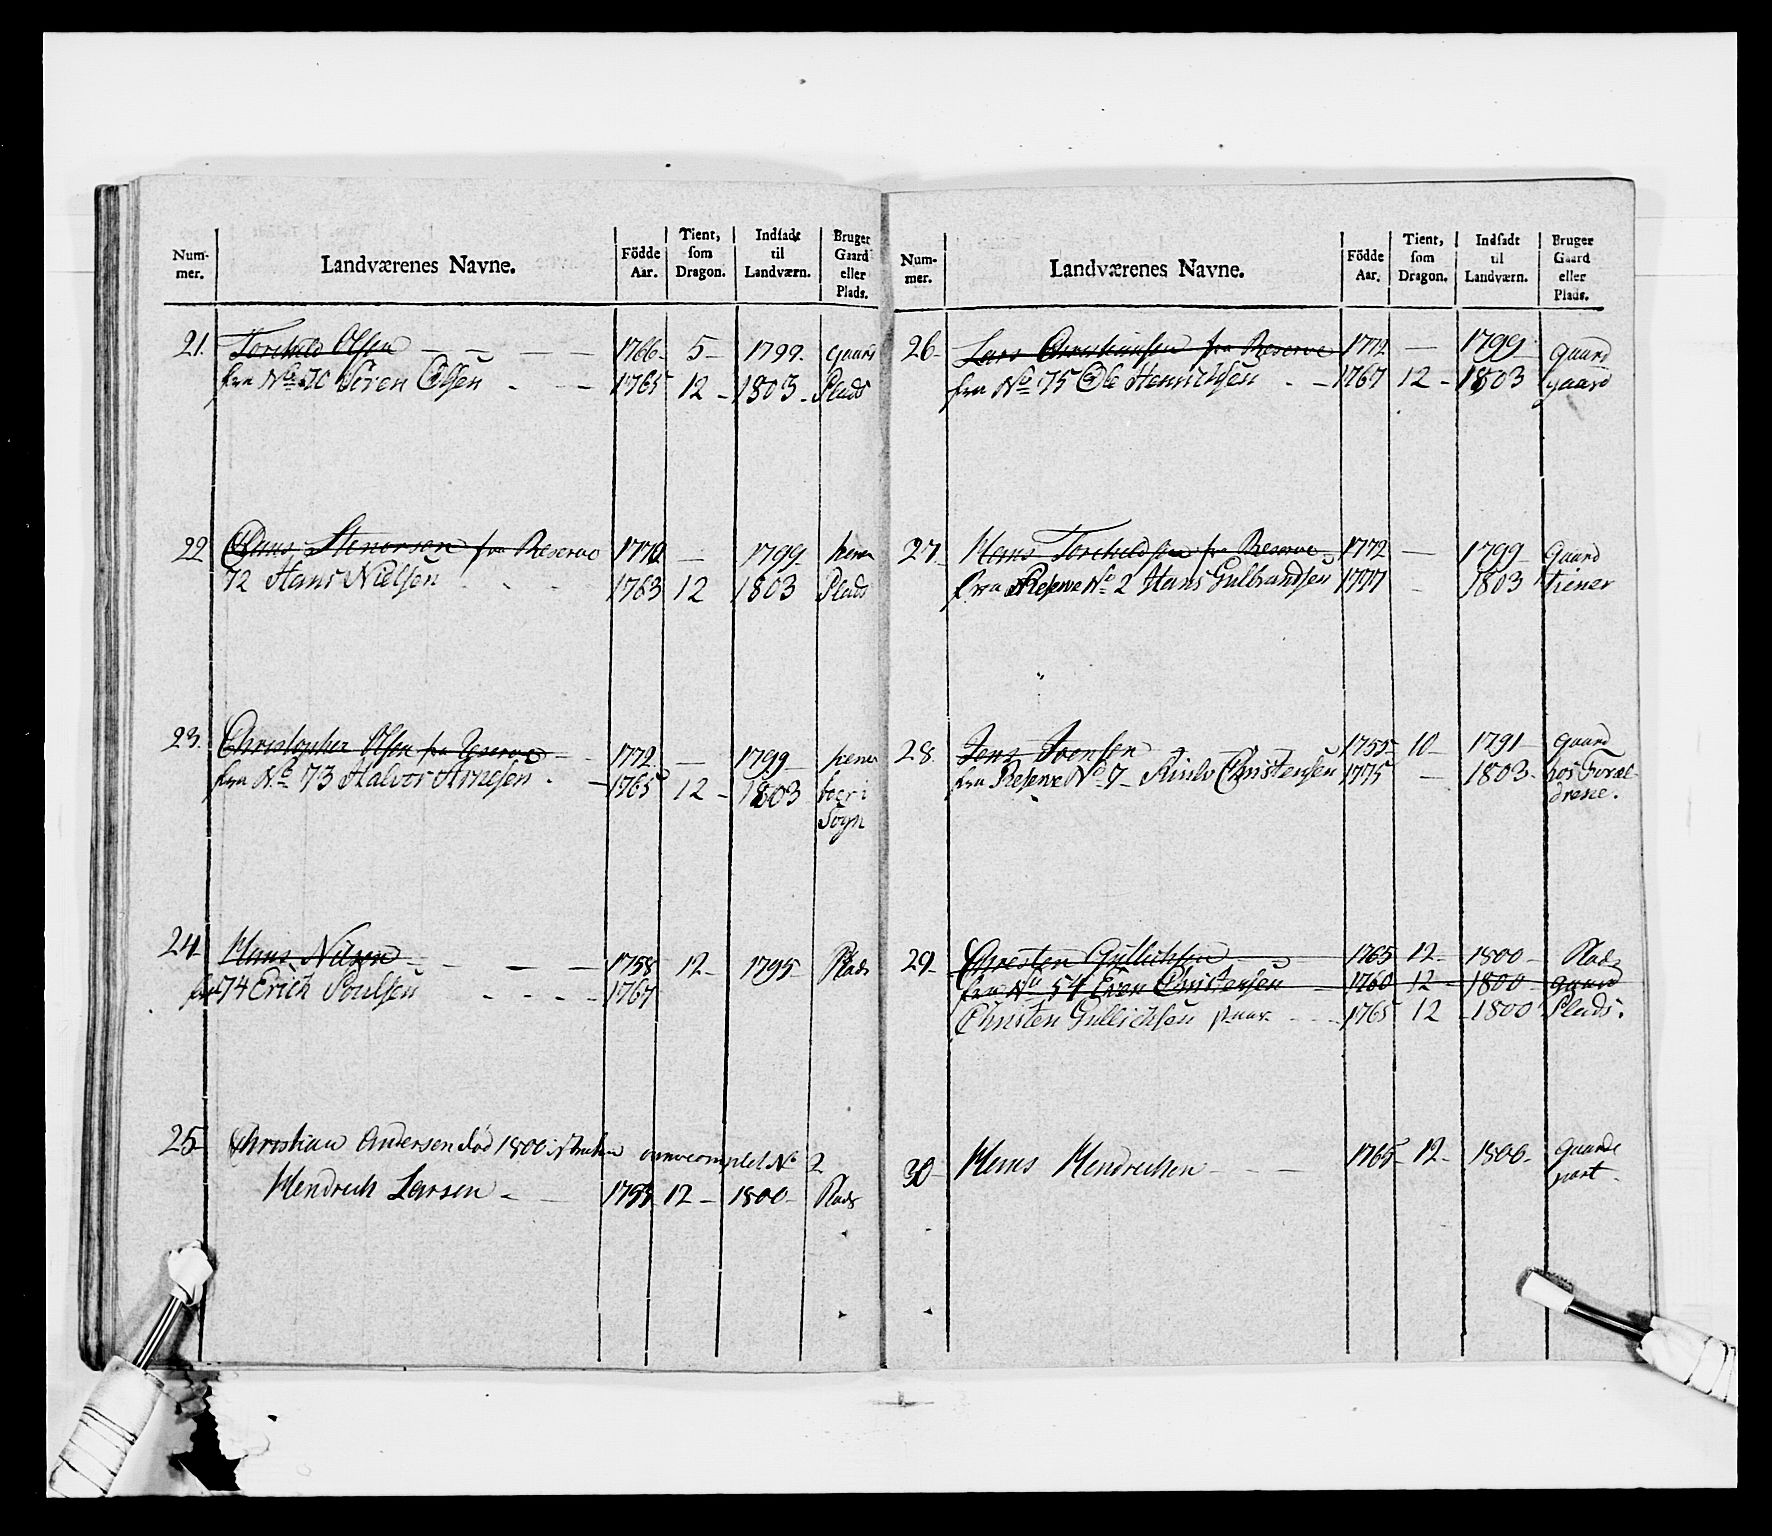 Num-
mer.
Landværenes Navne.
Födde
Aar.
Tient,
som
Dragon.
Indsadt
til
Landværn.
Bruger
Gaard
eller
Plads.
21. Torchild Olsen 1766 5 1799 Gaard
fra No 70 Soren Olsen 1765 12 1803 Plads
22 Stenersen fra Reserve 1770 1799
72 Hans Nielsen 1763 12 1803 Plads
23. Christopher Olsen fra Reserve 1772 1799
fra No 73 Halvor Arnesen 1765 12 1803 boer i
Sogn
24 Hans Nilsen 1758 12 1795 Plads
fra 74 Erich Poulsen 1767
25 Christian Andersen död 1800 No 2
Hendrich Larsen 12 1800 Plads
Num-
mer.
Landværenes Navne.
Födde
Aar.
Tient,
som
Dragon.
Indsadt
til
Landværn.
Bruger
Gaard
eller
Plads.
26 Lars Christiansen fra Reserve 1772 1799 Gaard
fra No 75 Ole Henrichsen 1767 12 1803 gaard
27 Hans Torchildsen fra Reserve 1772 1799 Gaard
fra Reserve No 2 Hans Gulbrandsen 1777 1803 tiener
28. Jens Svensen 1755 10 1791 Gaard
fra Reserve No 7 Christensen 1775 1803 hos Foræl-
drene.
29 Christen Gullichsen 1765 12 1800 Plads
fra No 54 Even Christensen 1760 12 1800 gaard
Christen Gullichsen 1765 12 1800 Plads.
30 Hans Hendrichsen 1765 12 1800 gaarde
part